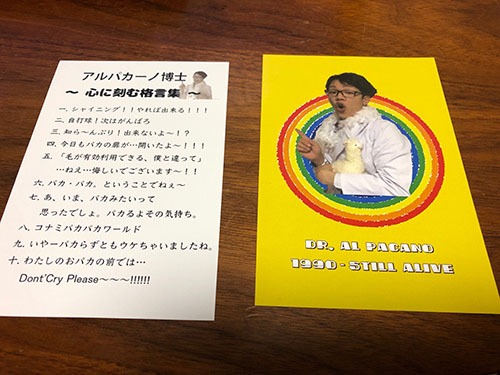 アルパカーノ博士
～ 心に刻む格言集 ～
一. シャイニング！！やれば出来る！！！
二. 自打球！次はがんばろ
三. 知ら～んぷり！出来ないよ～！？
四. 今日もパカの扉が…開いたよ～！！！
五. 「毛が有効利用できる、僕と違って」
…ねえ…悔しいでございます～！！
六. パカ・パカ。ということでねぇ～
七. あ、いま、パカみたいって
思ったでしょ。パカるよその気持ち。
八. コナミパカパカワールド
九. いやーパカらずともウケちゃいましたね。
十. わたしのおパカの前では…
Dont'Cry Please～～～!!!!!!
DR. AL PACANO
1990 - STILL ALIVE